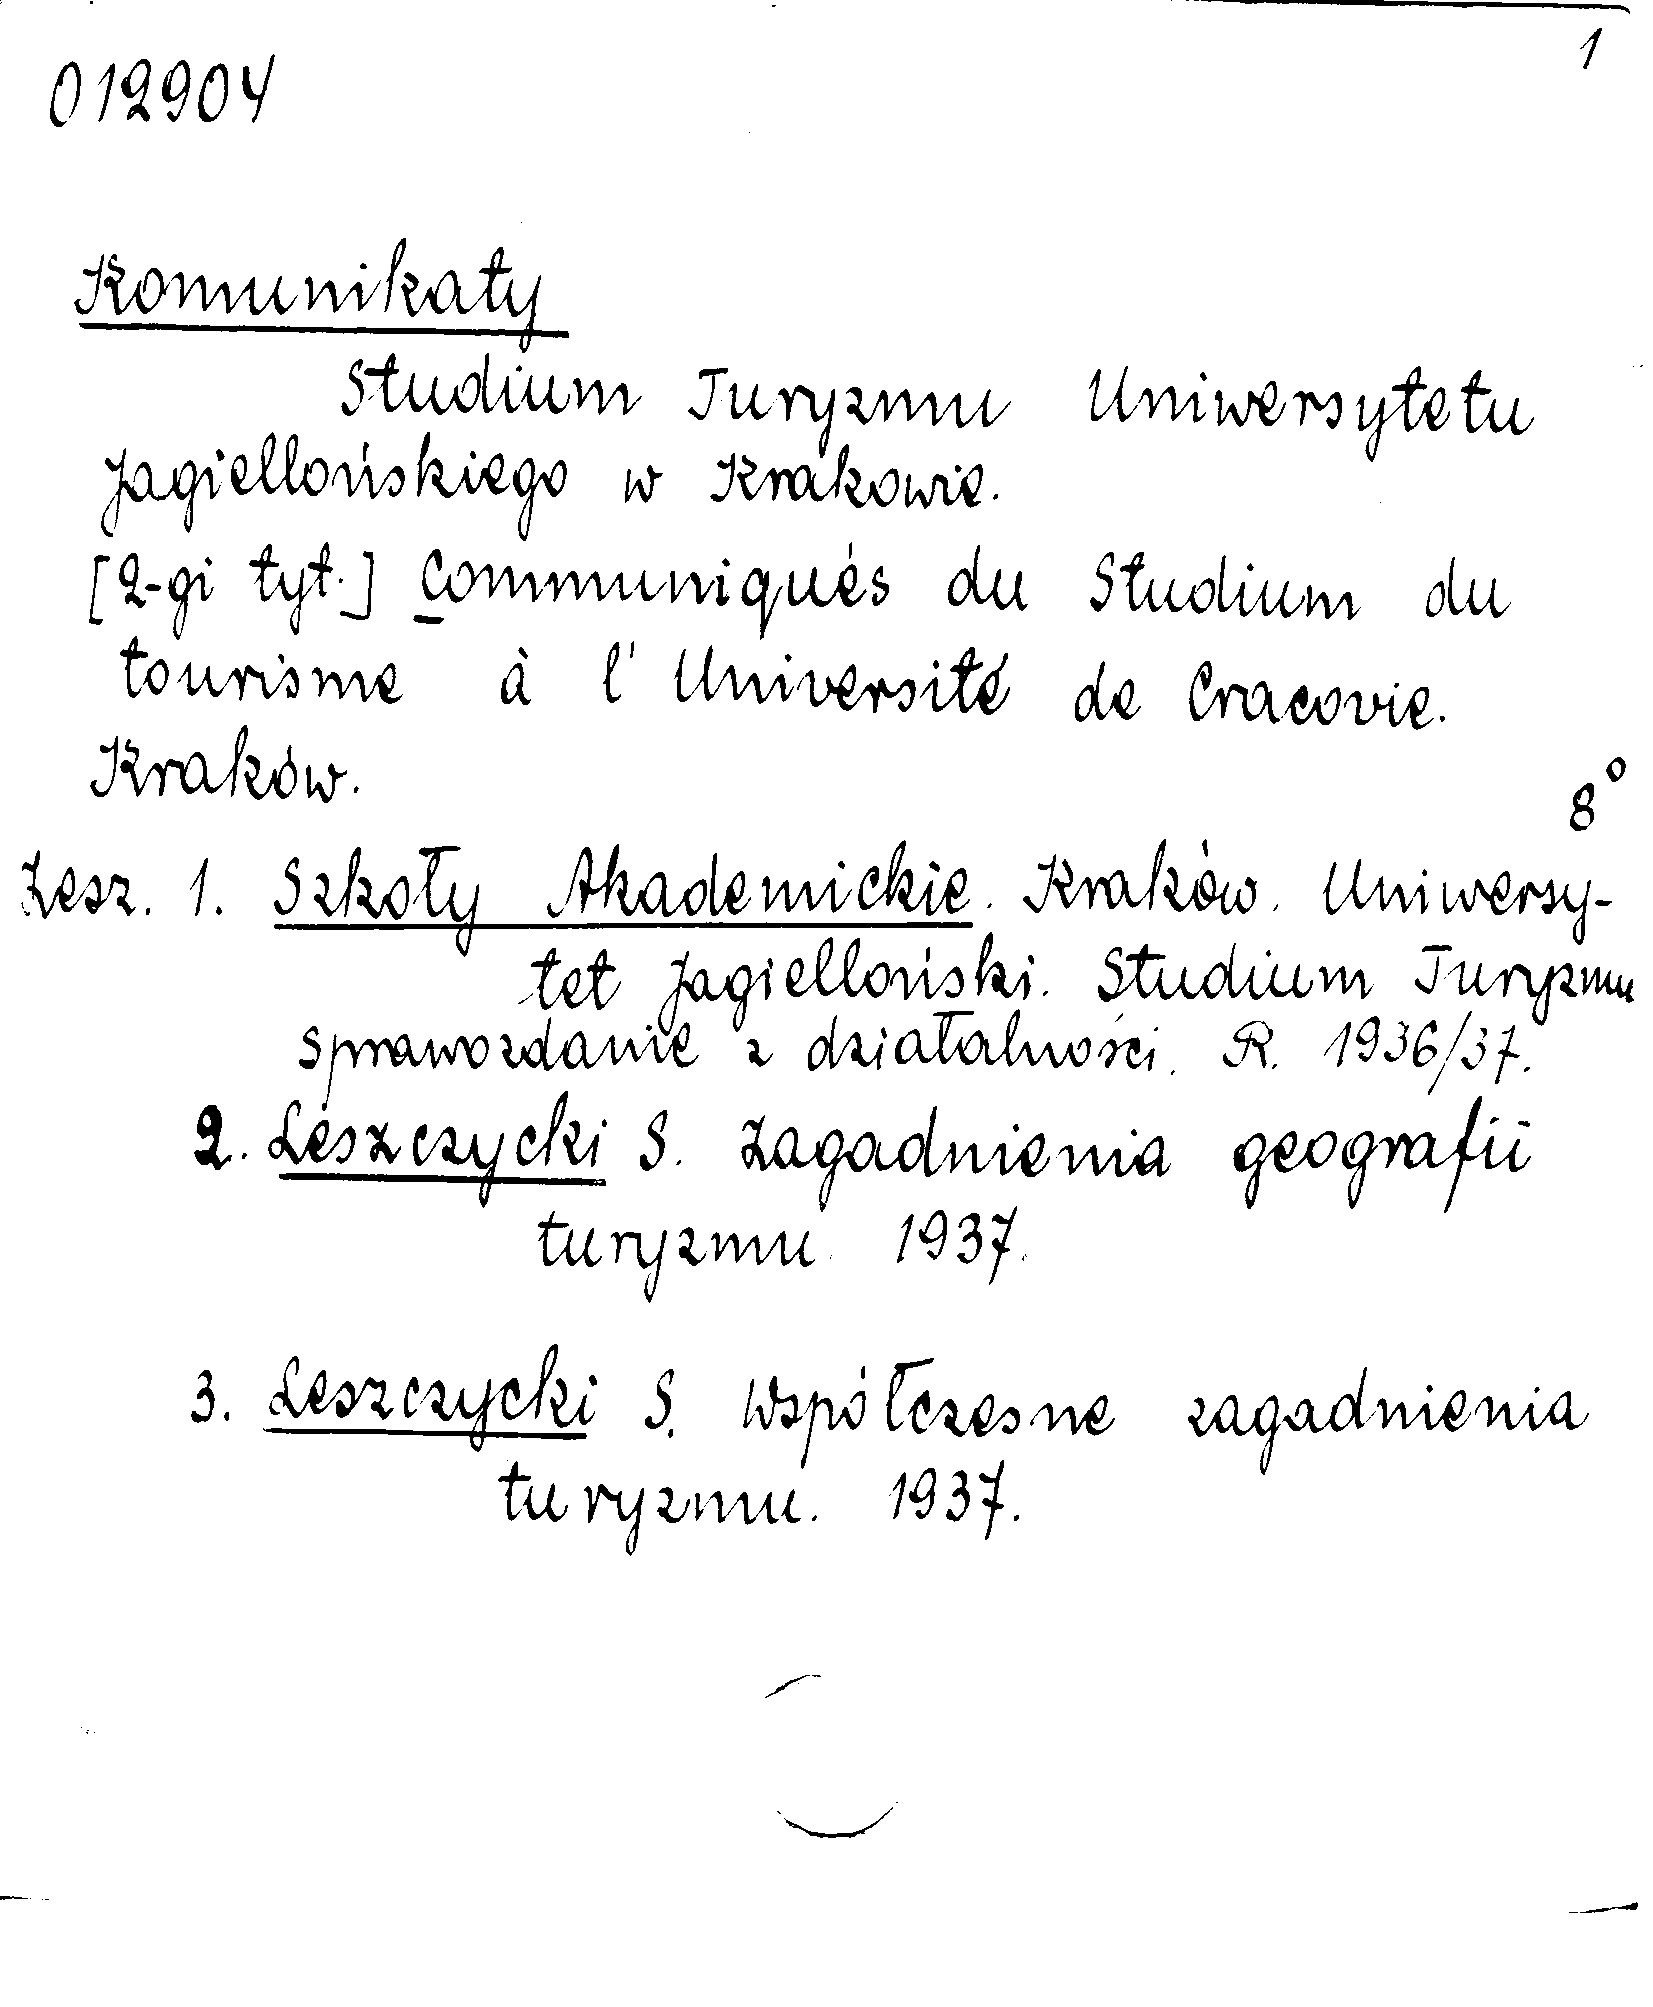 1
012904
Komunikaty
Studium Turyzmu Uniwersytetu
Jagiellońskiego w Krakowie.
[2-gi tyt.] Communiqués du Studium du
tourisme à l'Université de Cracovie.
Kraków.
8°
Zesz. 1. Szkoły Akademickie. Kraków. Uniwersy-
tet Jagielloński. Studium Turyzmu
Sprawozdanie z działalności. R. 1936/37.
2. Leszczycki S. Zagadnienia geografii
turyzmu. 1937.
3. Leszczycki S. Współczesne zagadnienia
turyzmu. 1937.